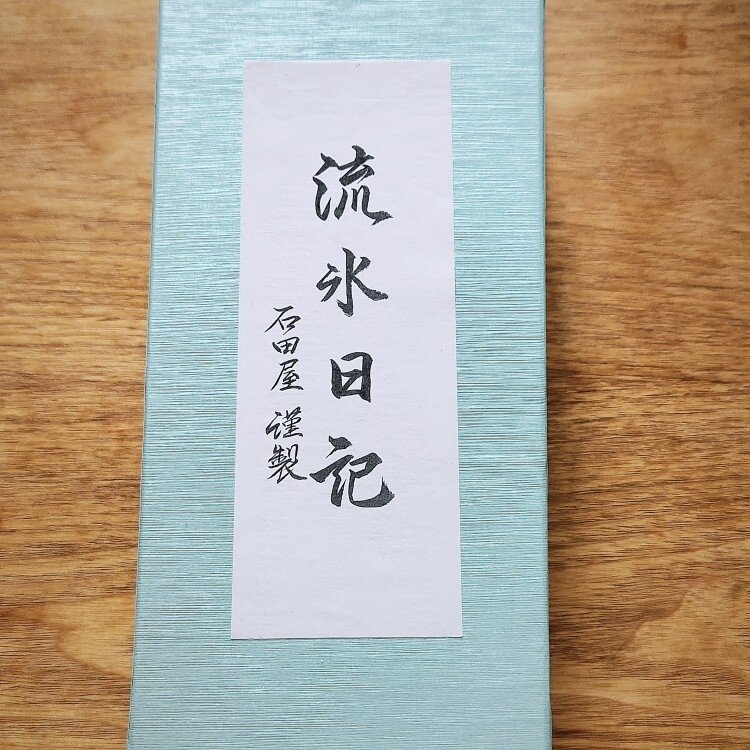 流氷日記
石田屋 謹製